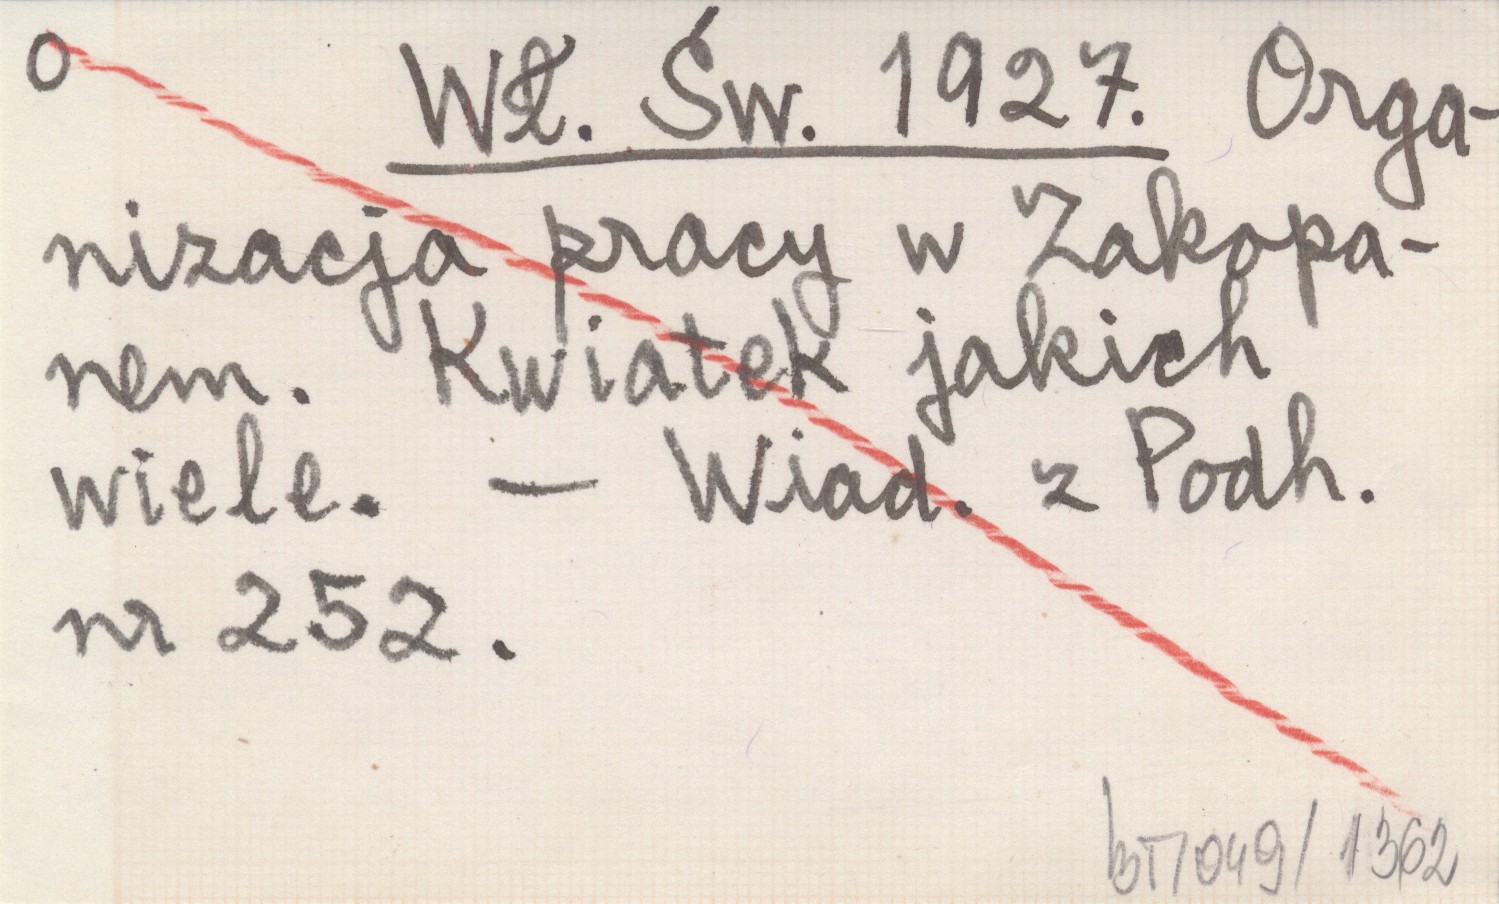 o Wł. Św. 1927. Orga-
nizacja pracy w Zakopa-
nem. Kwiatek jakich
wiele. — Wiad. z Podh.
nr 252.
bT/049/1362